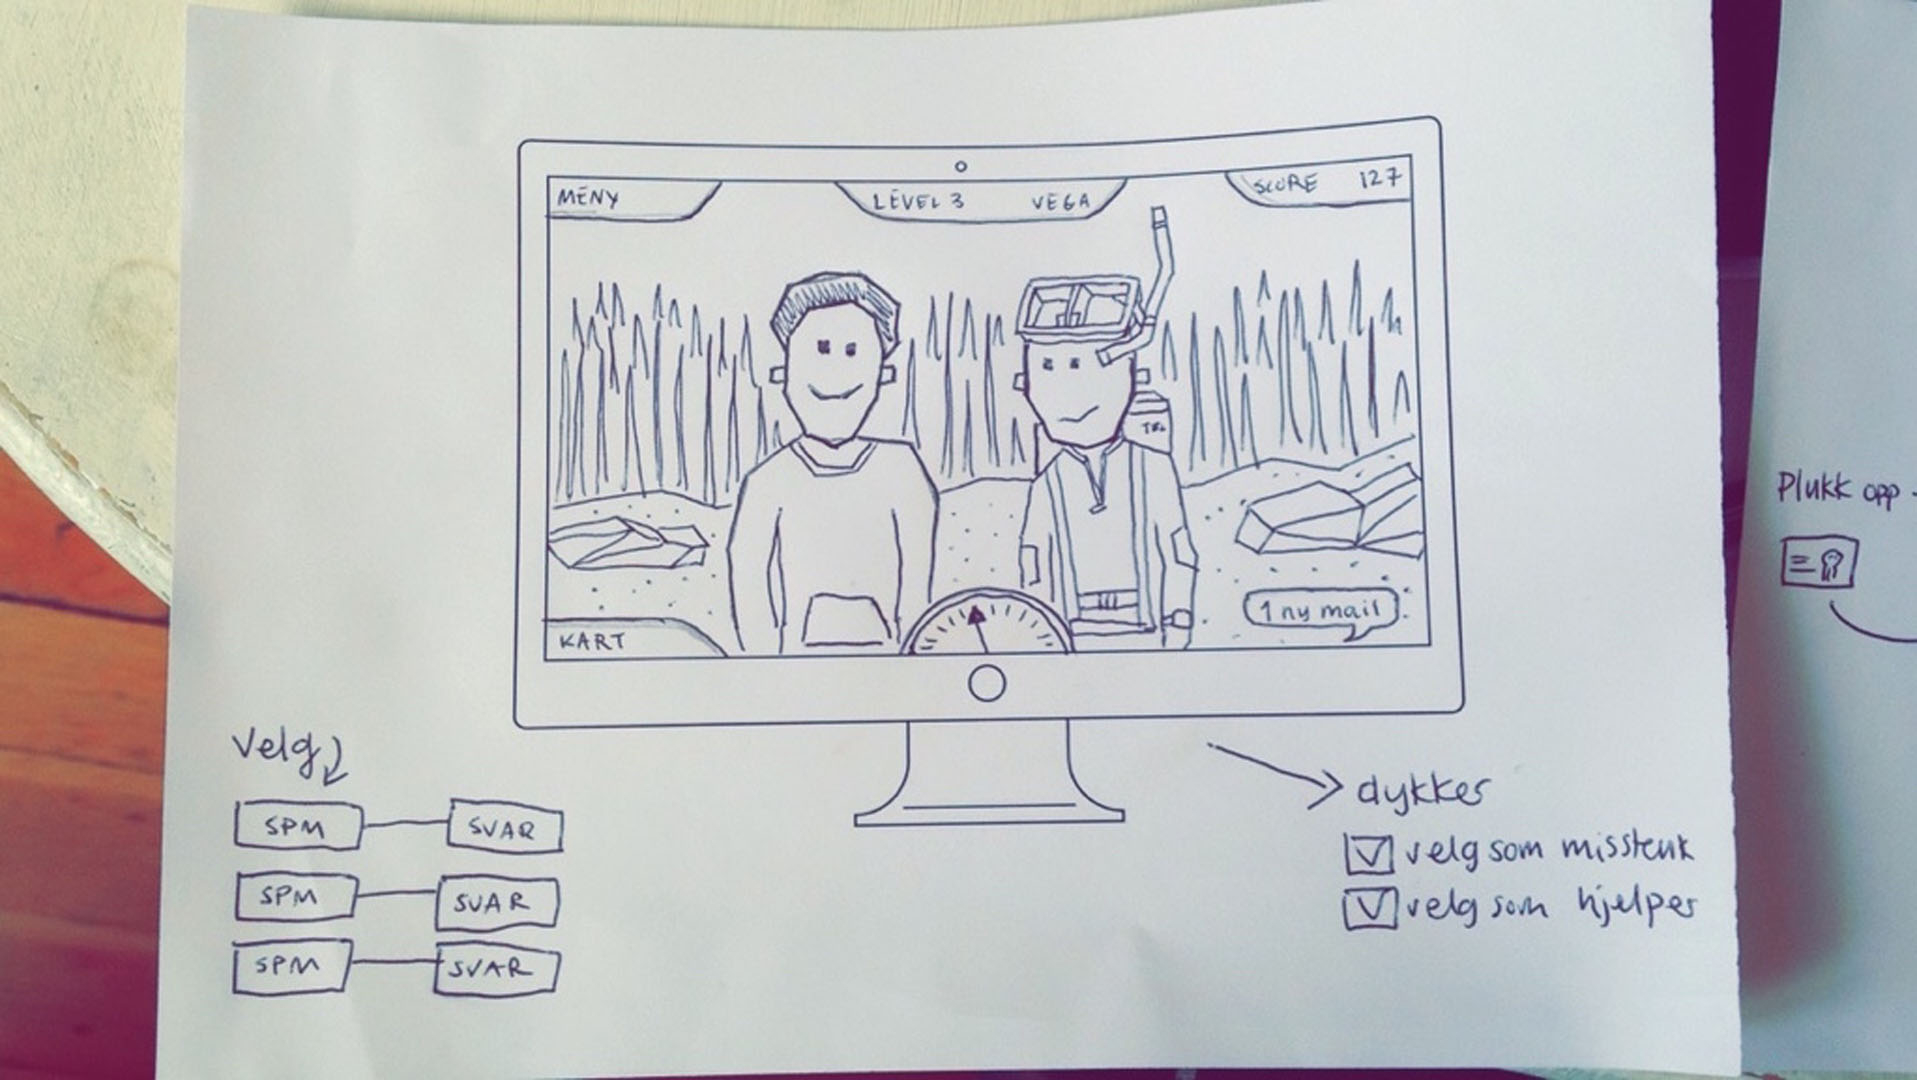 MENY
LEVEL 3 VEGA
SCORE 127
TEL
1 ny mail
KART
Velg
SPM SVAR
SPM SVAR
SPM SVAR
dykker
velg som misstenk
velg som hjelper
Plukk opp